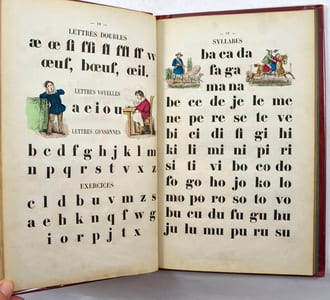 LETTRES DOUBLES
æ œ w
œuf, bœuf, œil,
LETTRES VOYELLES
a e i o u
LETTRES CONSONNES
b c d f g h j k l m
n p q r s t v x z
EXERCICES
c l d b u v y m z s
a e h k n q
i o r p j t x
SYLLABES
ba ca da
fa ga
ma na
be ce de je le me
ne pe re se te ve
bi ci di fi gi hi
ki li mi ni pi ri
si ti vi bo co do
fo go ho jo ko lo
mo po ro so to vo
bu cu du fu gu hu
ju lu mu pu ru su